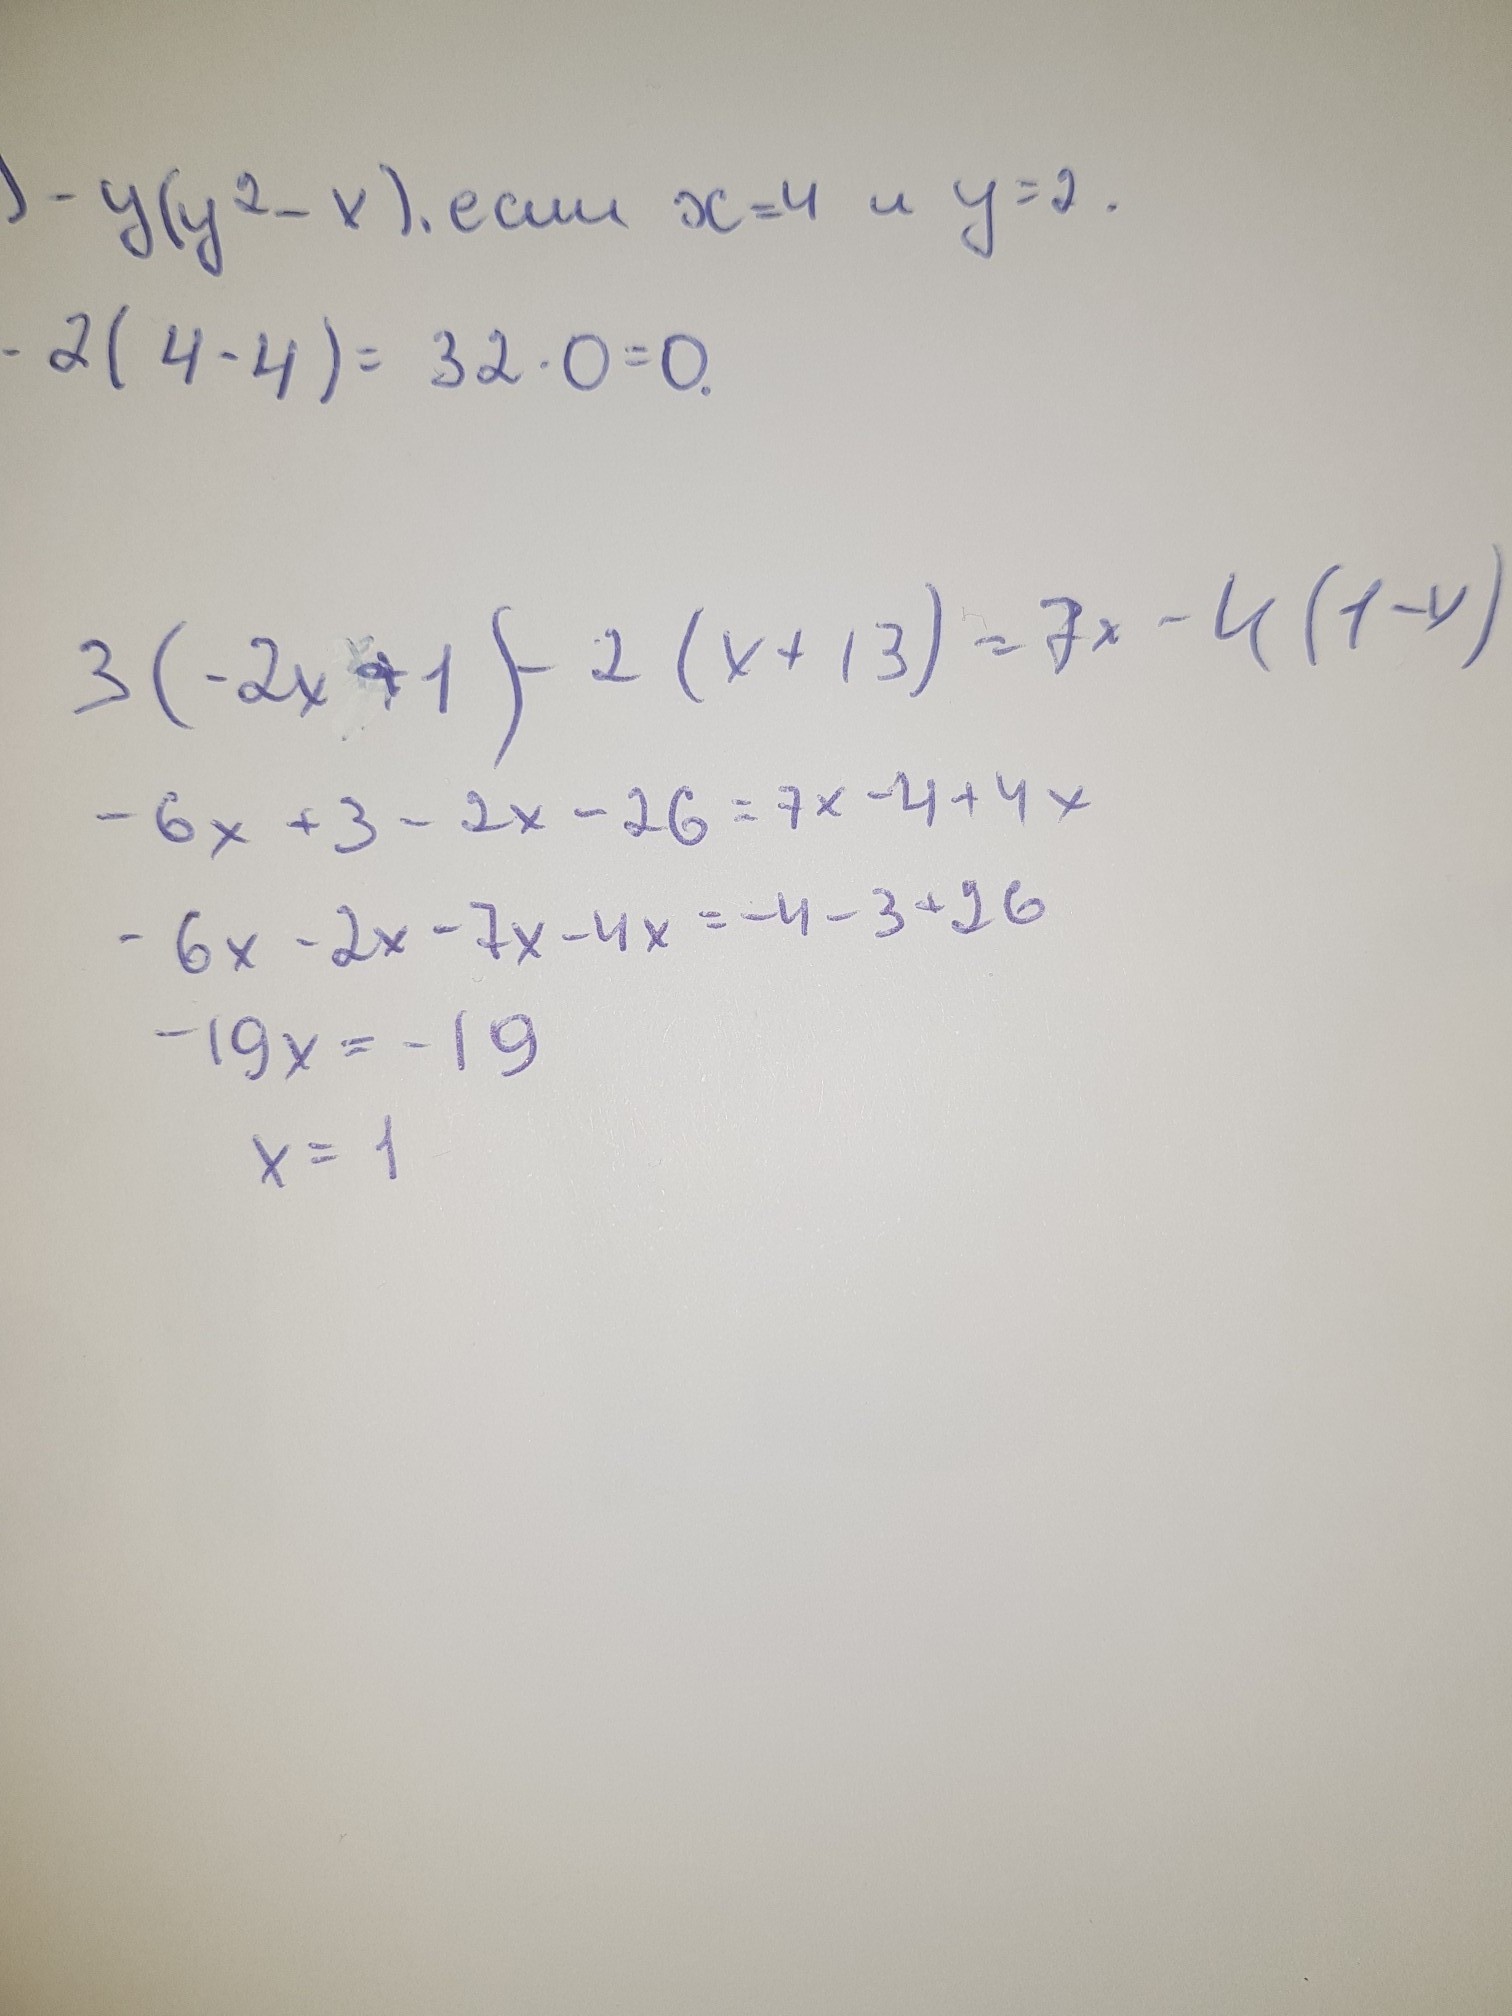 ) - y(y² - x). если x=4 и y=2.
- 2(4-4) = 32·0=0.
3(-2x+1) - 2(x+13) = 7x - 4(1-x)
-6x +3 - 2x - 26 = 7x -4+4x
-6x - 2x - 7x - 4x = -4 - 3 + 26
-19x = -19
x = 1